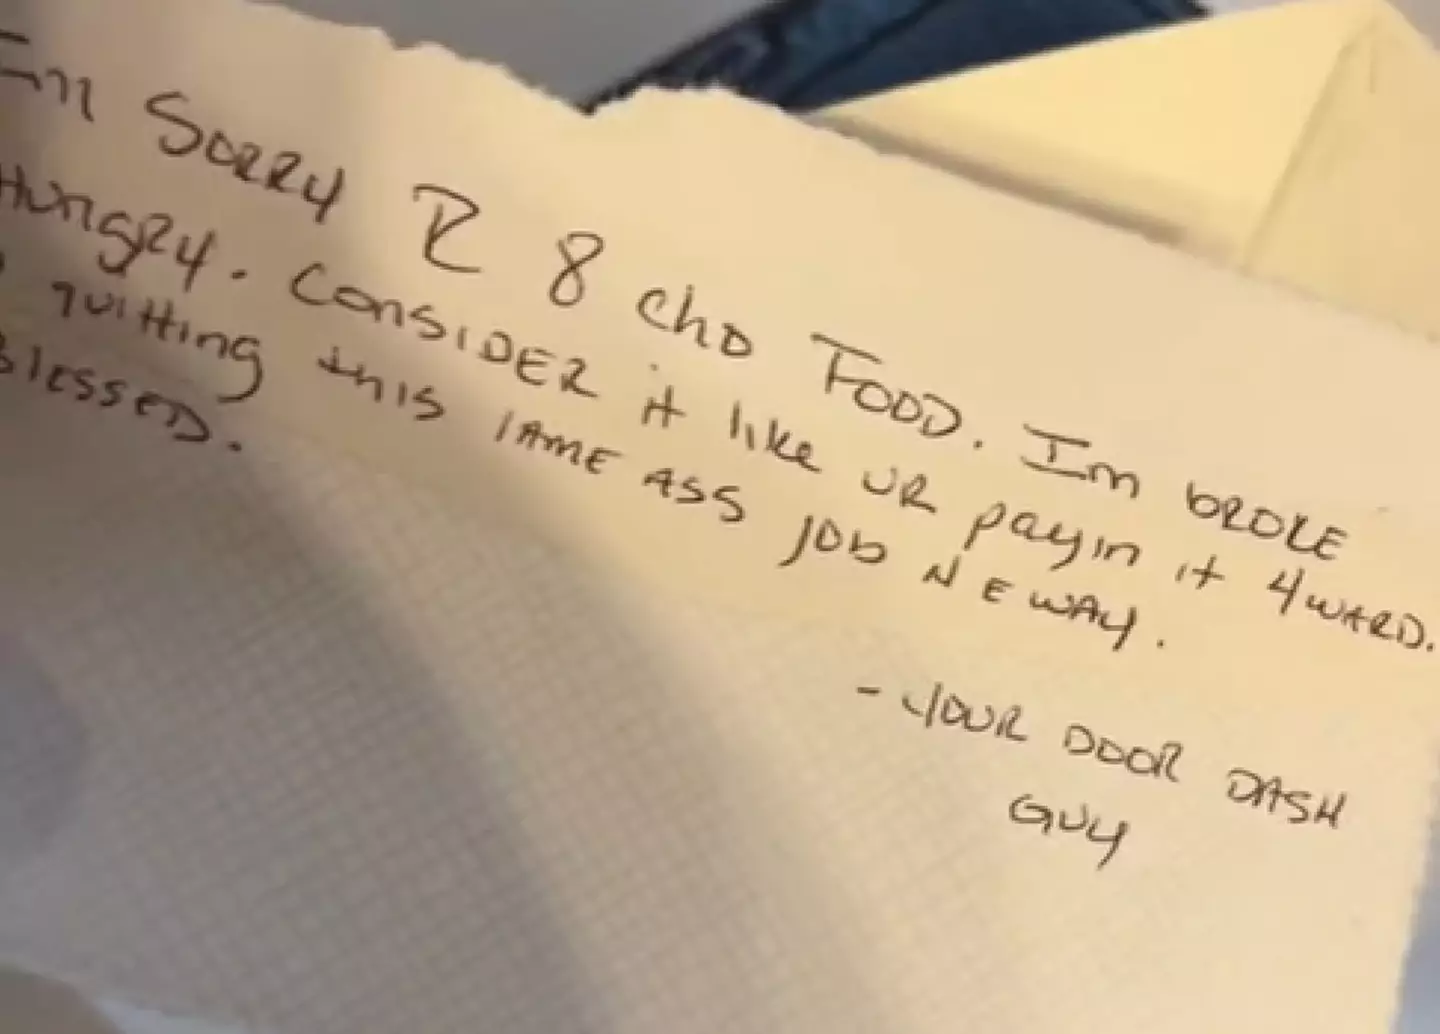 Im Sorry I 8 cho Food. Im broke
Hungry. Consider it like ur payin it 4ward.
quitting this lame ass job N E way.
Blessed.
- Your Door Dash
Guy